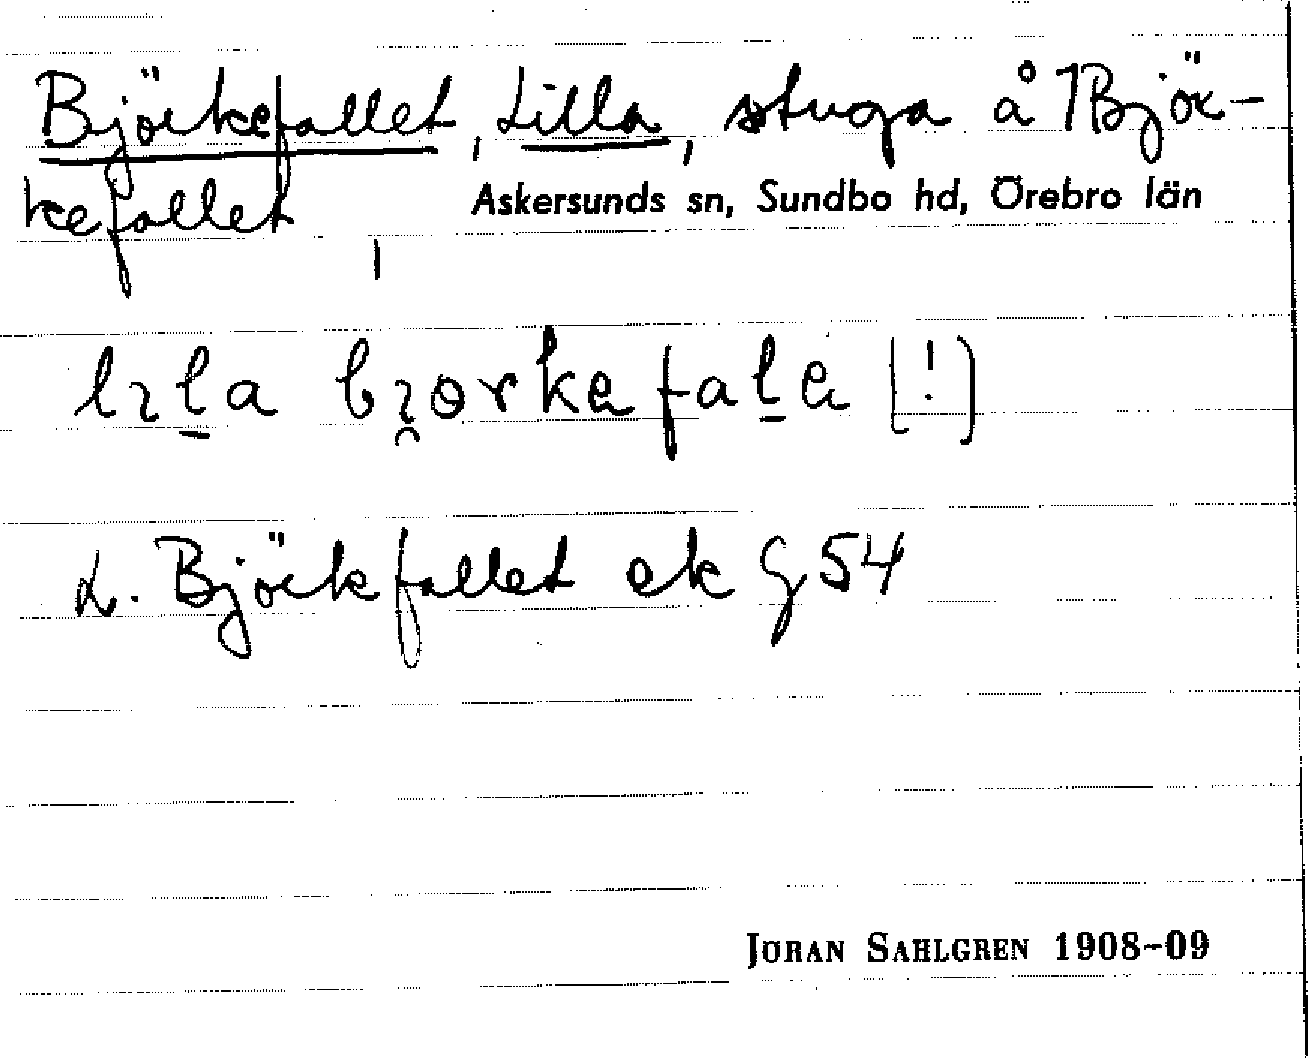 Björkefallet, Lilla, stuga å 1Björ-
kefallet
Askersunds sn, Sundbo hd, Örebro län
lɩḻa bɩ̯ɵrkefaḻe (!)
L. Björkfallet ek G 54
JÖRAN SAHLGREN 1908-09